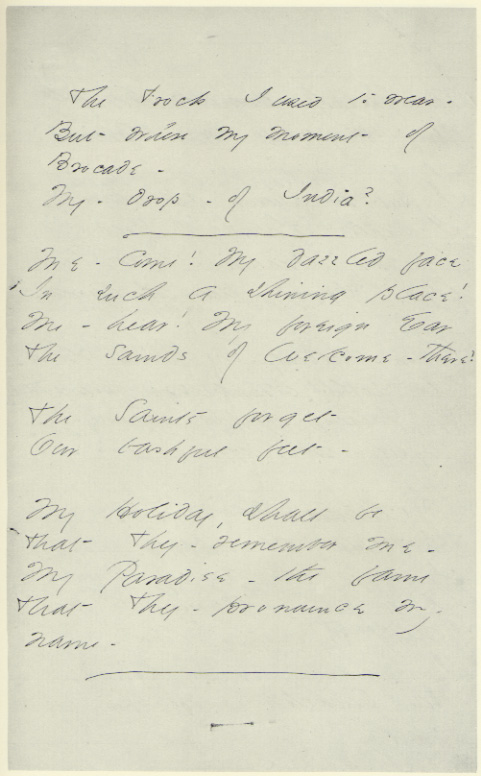 The frock I used to wear -
But where my moment - of
Brocade -
My - drop - of India?
Me - Come! My dazzled face
In such a shining place!
Me - hear! My foreign Ear
The Sounds of Welcome - there!
The Saints forget
Our bashful feet -
My Holiday, shall be
That - They - remember me -
My Paradise - the fame
That - They - pronounce my -
name -